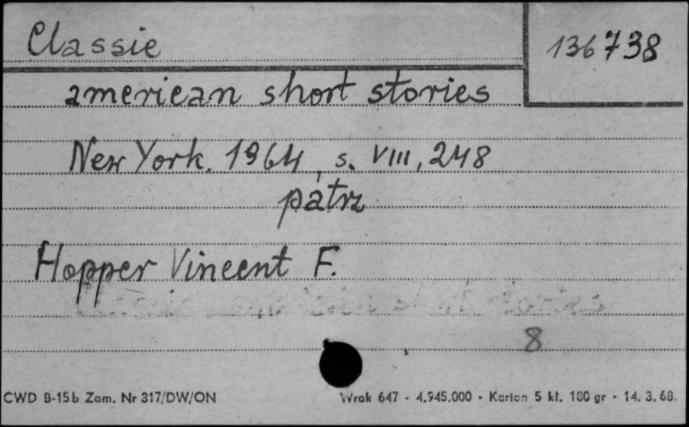 Classic
136738
american short stories
New York. 1964, s. VIII, 248
patrz
Hopper Vincent F.
8
CWD B-15b Zam. Nr 317/DW/ON Wrak 647 - 4.945.000 - Karton 5 kl. 180 gr - 14. 3. 68.